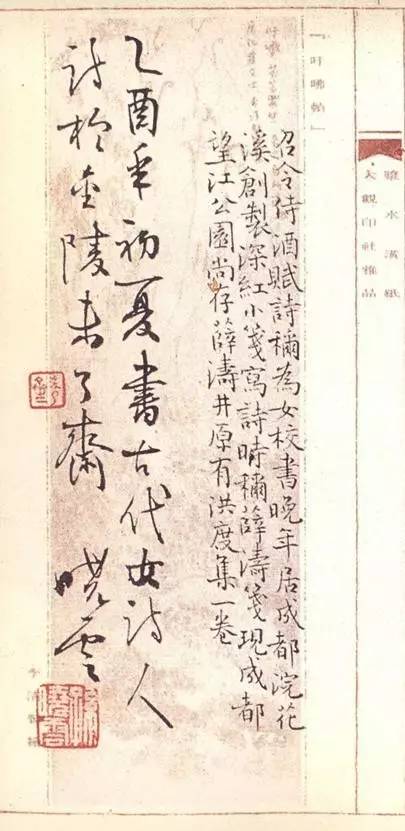 召令侍酒賦詩稱為女校書晚年居成都浣花
溪創製深紅小箋寫詩時稱薛濤箋現成都
望江公園尚存薛濤井原有洪度集一卷
乙酉年初夏書古代女詩人
詩於金陵未了齋 曉雲
大觀印社雅品